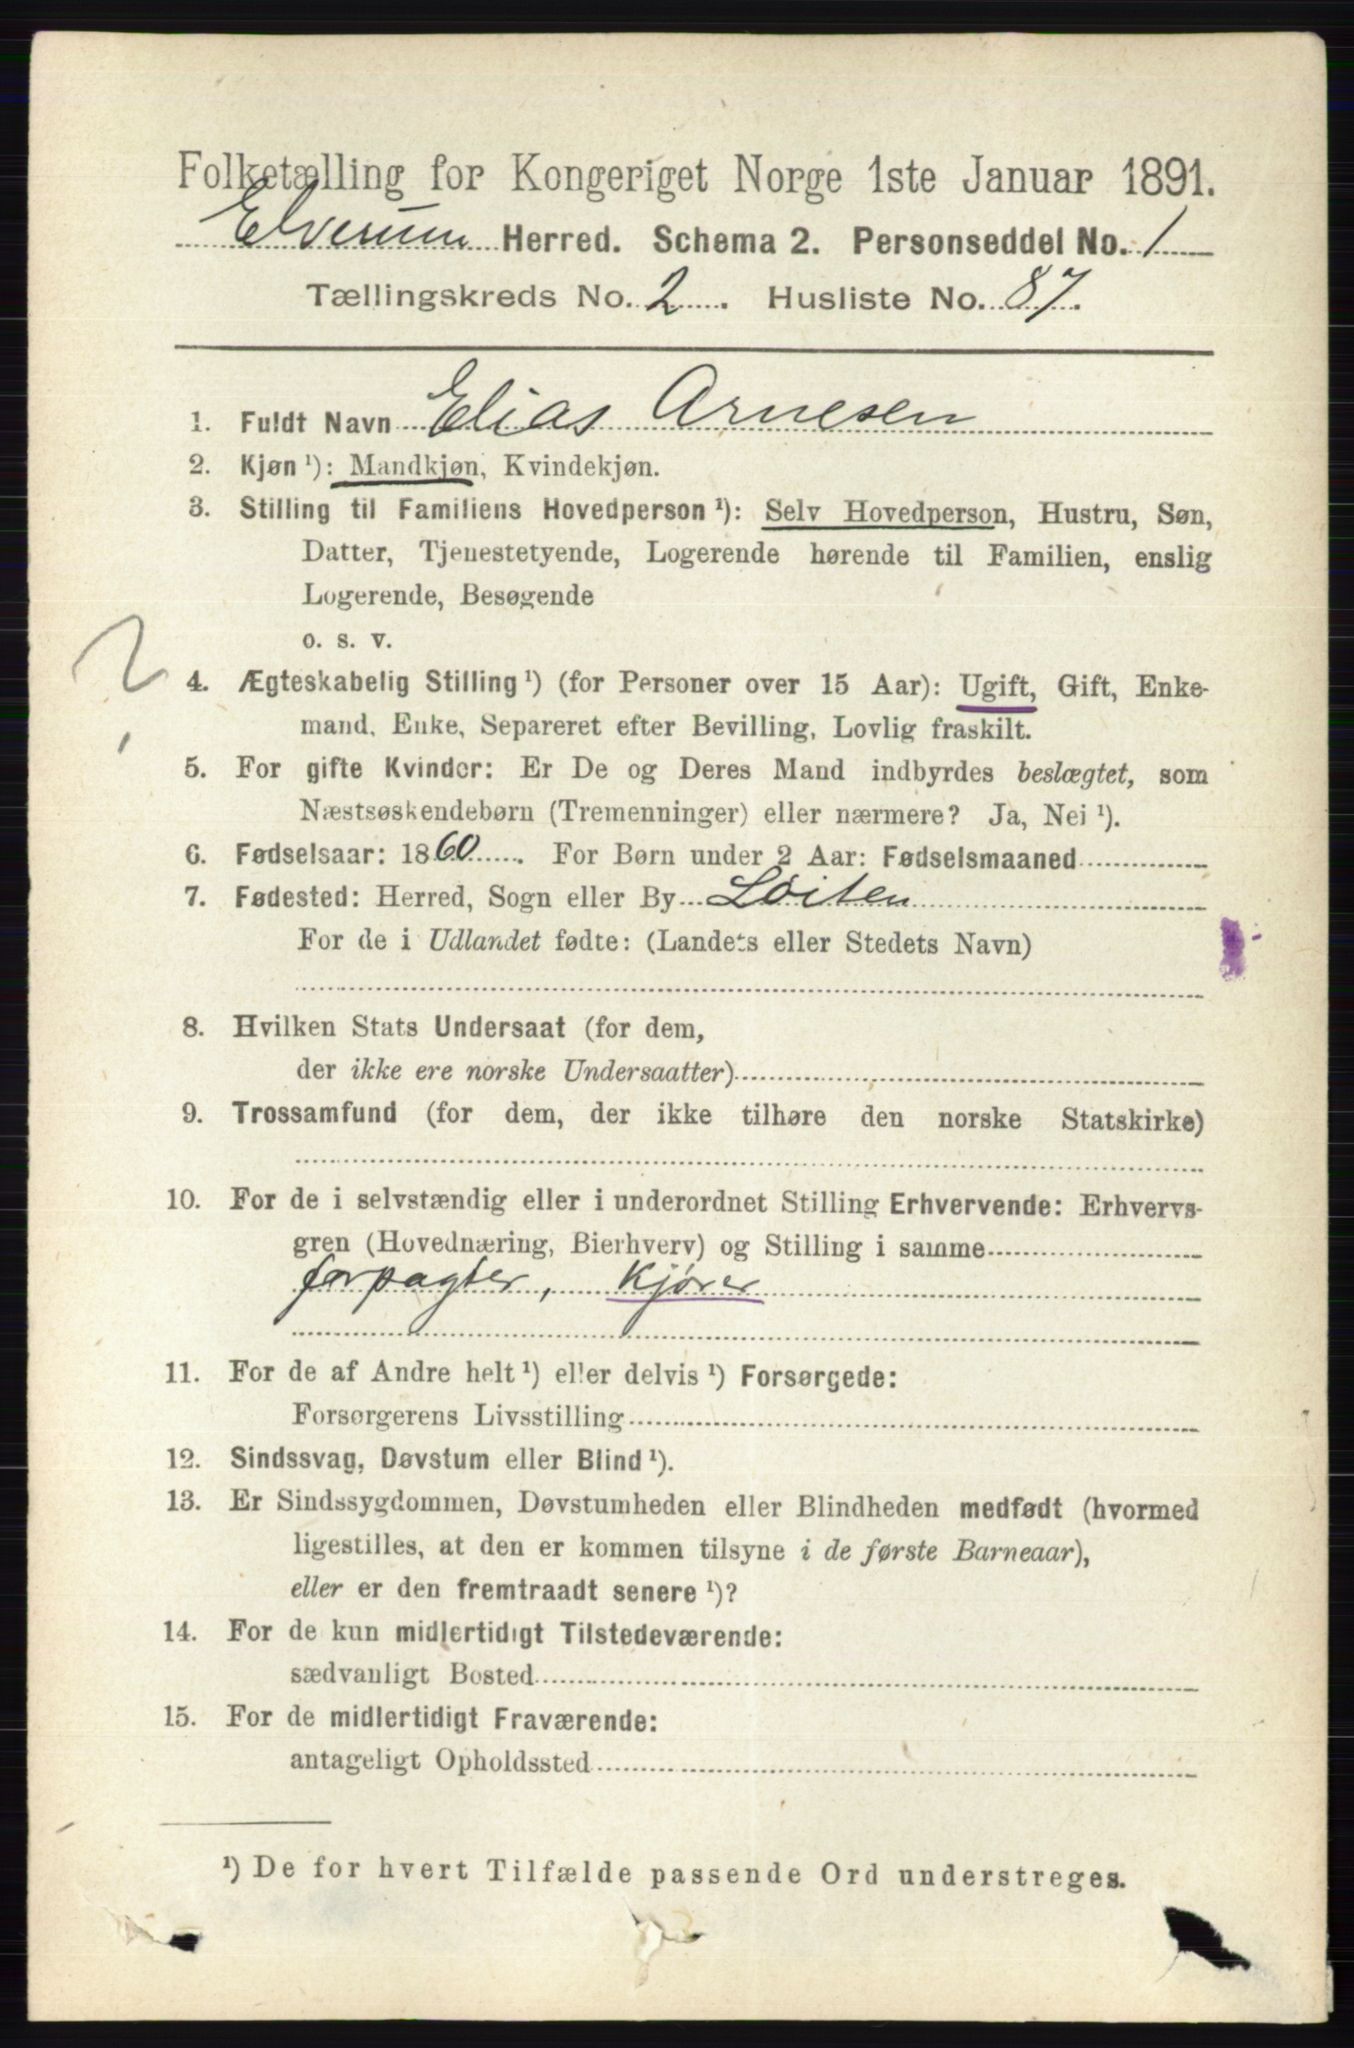 Folketælling for Kongeriget Norge 1ste Januar 1891.
Elverum Herred. Schema 2. Personseddel No. 1
Tællingskreds No. 2. Husliste No. 87.
1. Fuldt Navn Elias Arnesen
2. Kjøn ¹): Mandkjøn, Kvindekjøn.
3. Stilling til Familiens Hovedperson ¹): Selv Hovedperson, Hustru, Søn,
Datter, Tjenestetyende, Logerende hørende til Familien, enslig
Logerende, Besøgende
o. s. v.
?
4. Ægteskabelig Stilling ¹) (for Personer over 15 Aar): Ugift, Gift, Enke-
mand, Enke, Separeret efter Bevilling, Lovlig fraskilt.
5. For gifte Kvinder: Er De og Deres Mand indbyrdes beslægtet, som
Næstsøskendebørn (Tremenninger) eller nærmere? Ja, Nei ¹).
6. Fødselsaar: 1860. For Børn under 2 Aar: Fødselsmaaned
7. Fødested: Herred, Sogn eller By Löiten
For de i Udlandet fødte: (Landets eller Stedets Navn)
8. Hvilken Stats Undersaat (for dem,
der ikke ere norske Undersaatter)
9. Trossamfund (for dem, der ikke tilhøre den norske Statskirke)
10. For de i selvstændig eller i underordnet Stilling Erhvervende: Erhvervs-
gren (Hovednæring, Bierhverv) og Stilling i samme
forpagter, Kjører
11. For de af Andre helt ¹) eller delvis ¹) Forsørgede:
Forsørgerens Livsstilling
12. Sindssvag, Døvstum eller Blind ¹).
13. Er Sindssygdommen, Døvstumheden eller Blindheden medfødt (hvormed
ligestilles, at den er kommen tilsyne i de første Barneaar),
eller er den fremtraadt senere ¹)?
14. For de kun midlertidigt Tilstedeværende:
sædvanligt Bosted
15. For de midlertidigt Fraværende:
antageligt Opholdssted
¹) De for hvert Tilfælde passende Ord understreges.